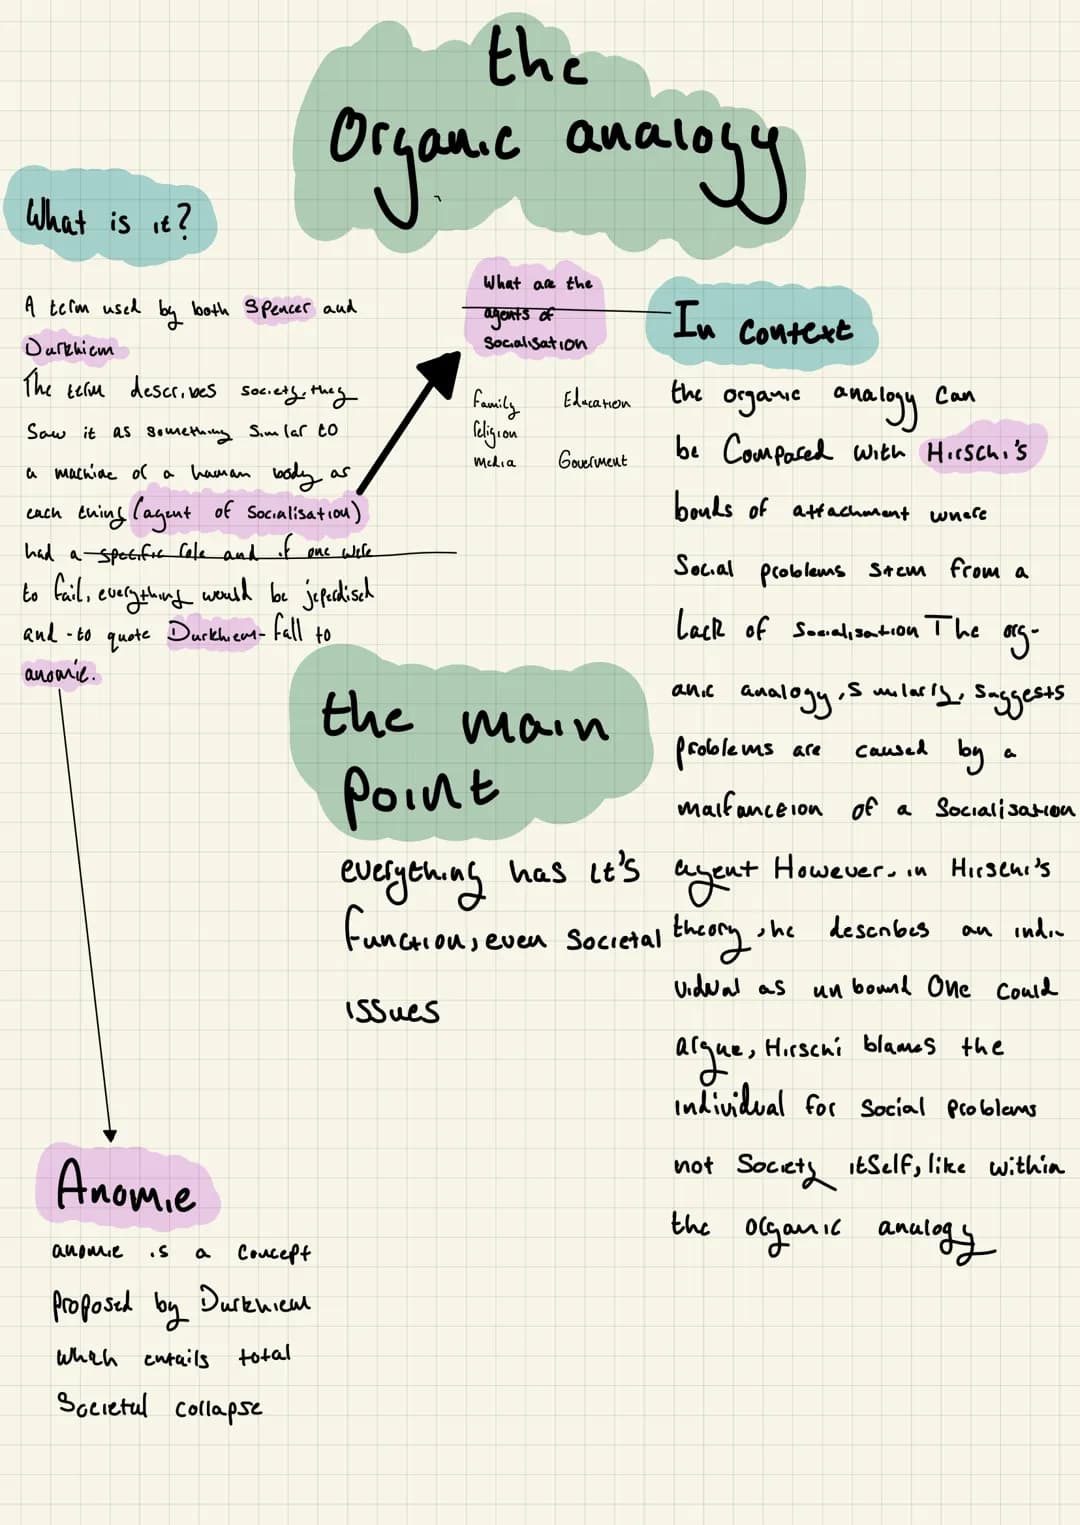 the
Organic analogy
What is it?
A term used by both Spencer and
Durkhiem
The term describes society, they
Saw it as something Similar to
a machine or a human body as
each thing (agent of Socialisation)
had a specific role and if one were
to fail, everything would be jeperdised
and - to quote Durkhiem - fall to
anomie.
What are the
agents of
Socialisation
Family Education
religion
media Government
In Context
the organic analogy Can
be Compared with Hirschi's
bonds of attachment where
Social problems Stem from a
Lack of Socialisation The org-
anic analogy, Similarly, Suggests
problems are caused by a
malfunction of a Socialisation
agent However, in Hirschi's
theory, he describes an indi-
vidual as unbound One Could
argue, Hirschi blames the
individual for Social problems
not Society itself, like within
the organic analogy
the main
Point
everything has it's
function, even Societal
issues
Anomie
anomie is a Concept
Proposed by Durkhiem
which entails total
Societal collapse